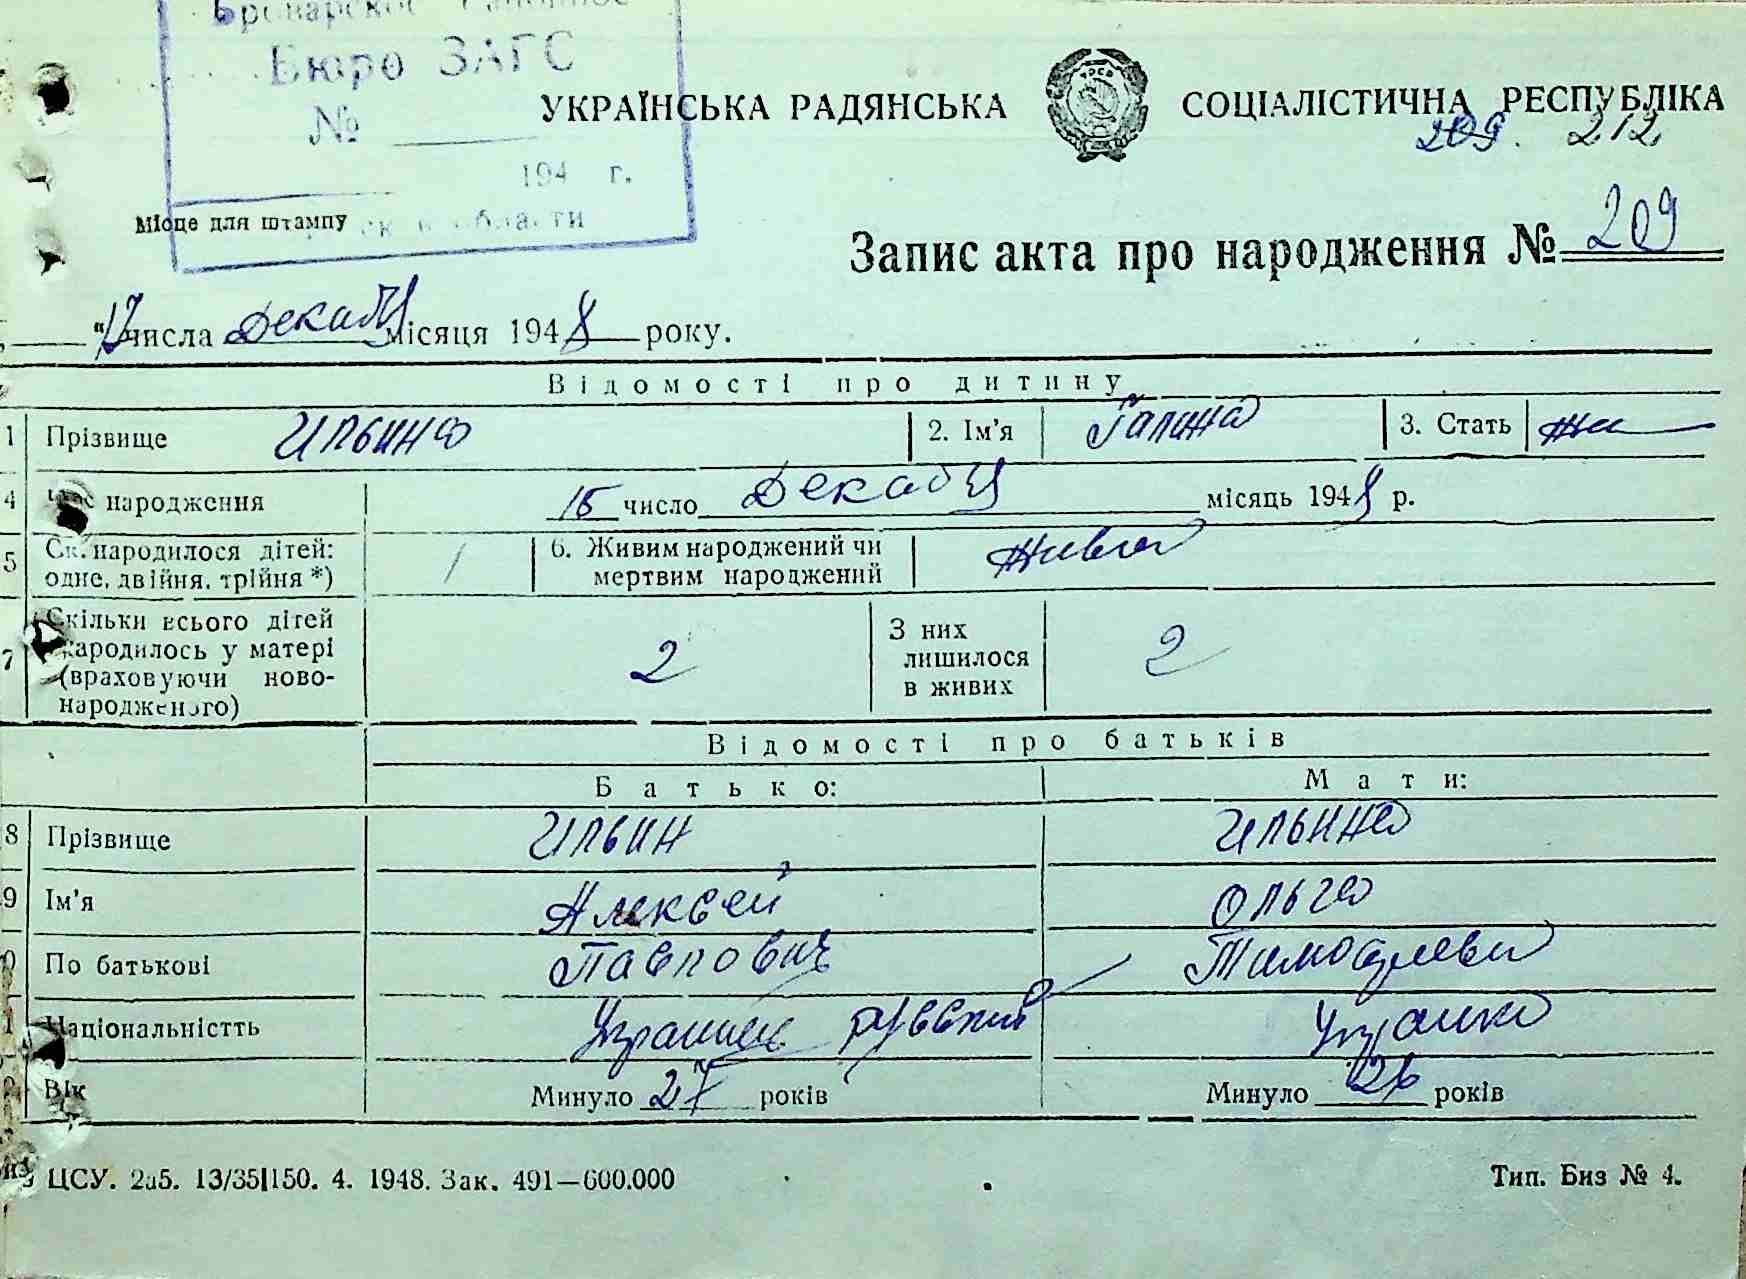 Броварское Районное
Бюро ЗАГС
№
194 г.
области
УКРАЇНСЬКА РАДЯНСЬКА СОЦІАЛІСТИЧНА РЕСПУБЛІКА
209. 212
Місце для штампу
Запис акта про народження № 209
"17 числа Декабря місяця 1948 року.
Відомості про дитину
1 Прізвище Ильина 2. Ім'я Галина 3. Стать жен
4 Час народження 15 число Декабря місяць 1948 р.
5 Ск. народилося дітей: 1 6. Живим народжений чи Живой
одне, двійня, трійня *) мертвим народжений
Скільки всього дітей З них
7 народилось у матері 2 лишилося 2
(враховуючи ново- в живих
народженого)
Відомості про батьків
Батько: Мати:
8 Прізвище Ильин Ильина
9 Ім'я Алексей Ольга
0 По батькові Павлович Тимофеевн
1 Національністть Украинец русский Украинка
2 Вік Минуло 27 років Минуло 26 років
ЦСУ. 2а5. 13/35|150. 4. 1948. Зак. 491—600.000 Тип. Биз № 4.